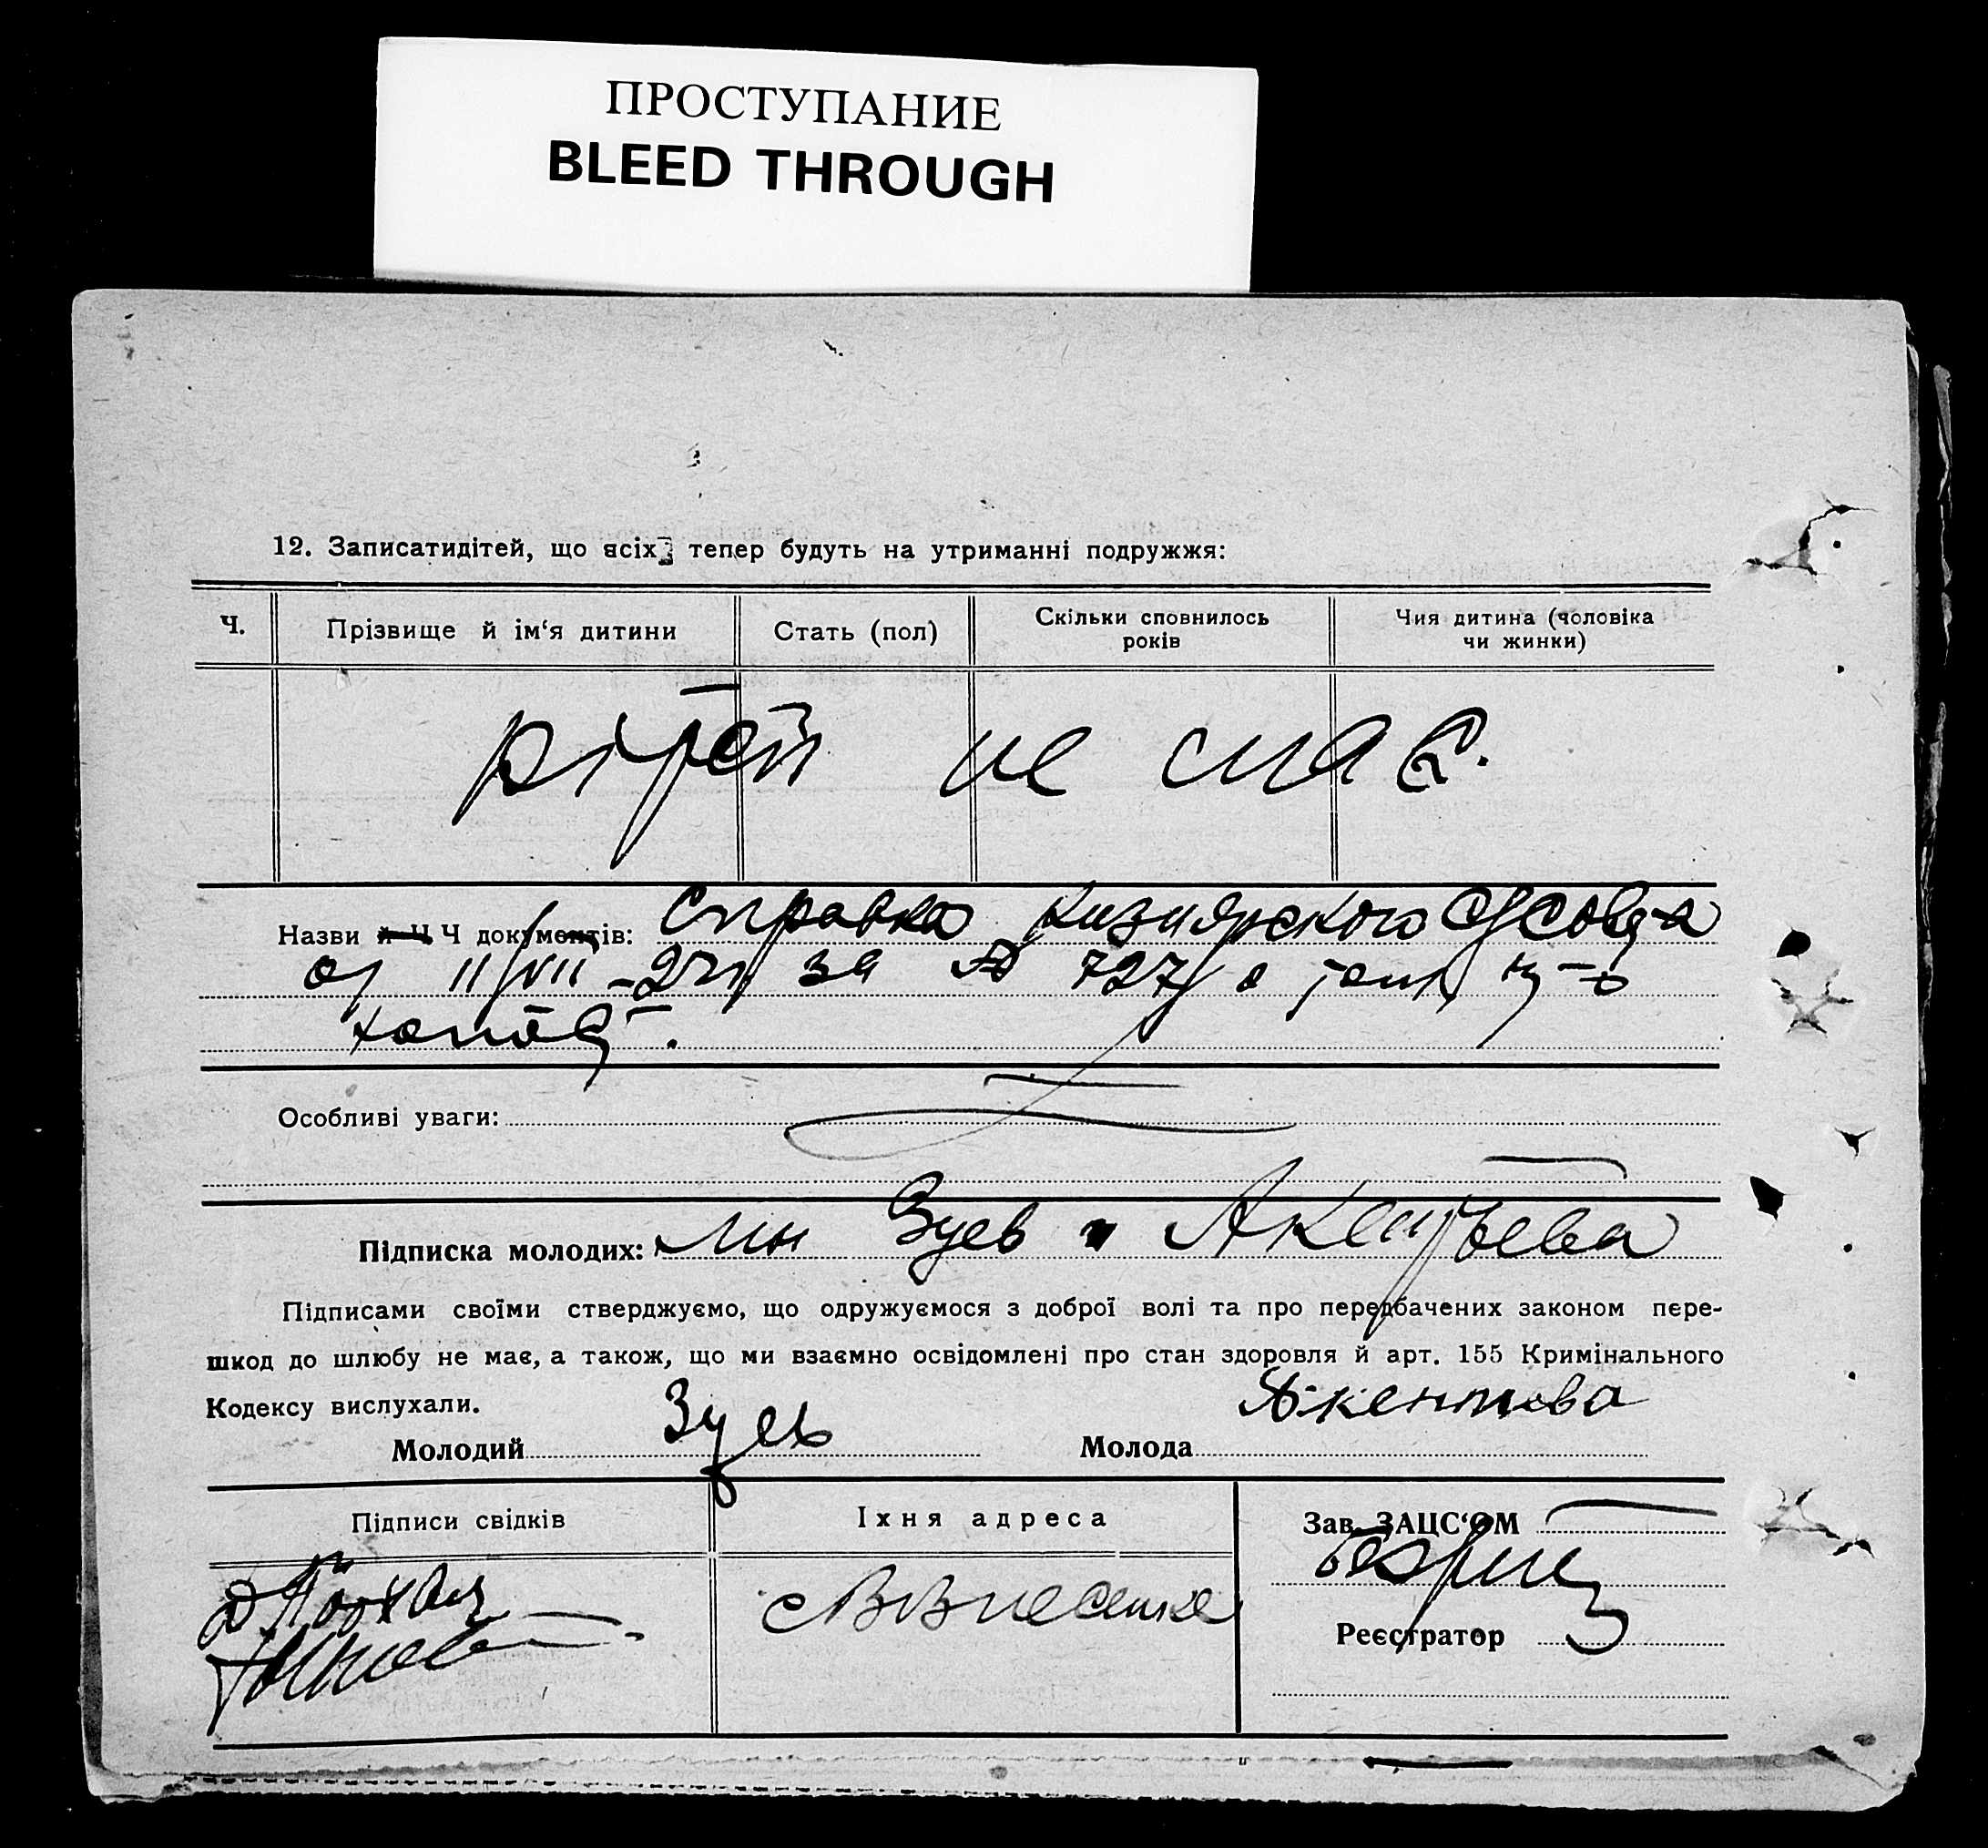 ПРОСТУПАНИЕ
BLEED THROUGH
12. Записатидітей, що всіх тепер будуть на утриманні подружжя:
Ч.
Прізвище й ім‘я дитини
Стать (пол)
Скільки сповнилось
років
Чия дитина (чоловіка
чи жинки)
дітей не має.
Назви й Ч Ч документів: Справка Кизиярского с/совета
от 11/VII-27г за № 727
Особливі уваги:
Підписка молодих: ми Зуев и Акентьева
Підписами своїми стверджуємо, що одружуємося з доброї волі та про передбачених законом пере-
шкод до шлюбу не має, а також, що ми взаємно освідомлені про стан здоровля й арт. 155 Кримінального
Кодексу вислухали.
Молодий Зуев
Молода Акентева
Підписи свідків
Їхня адреса
с Вознесенка
Зав. ЗАЦС‘ОМ
Реєстратор